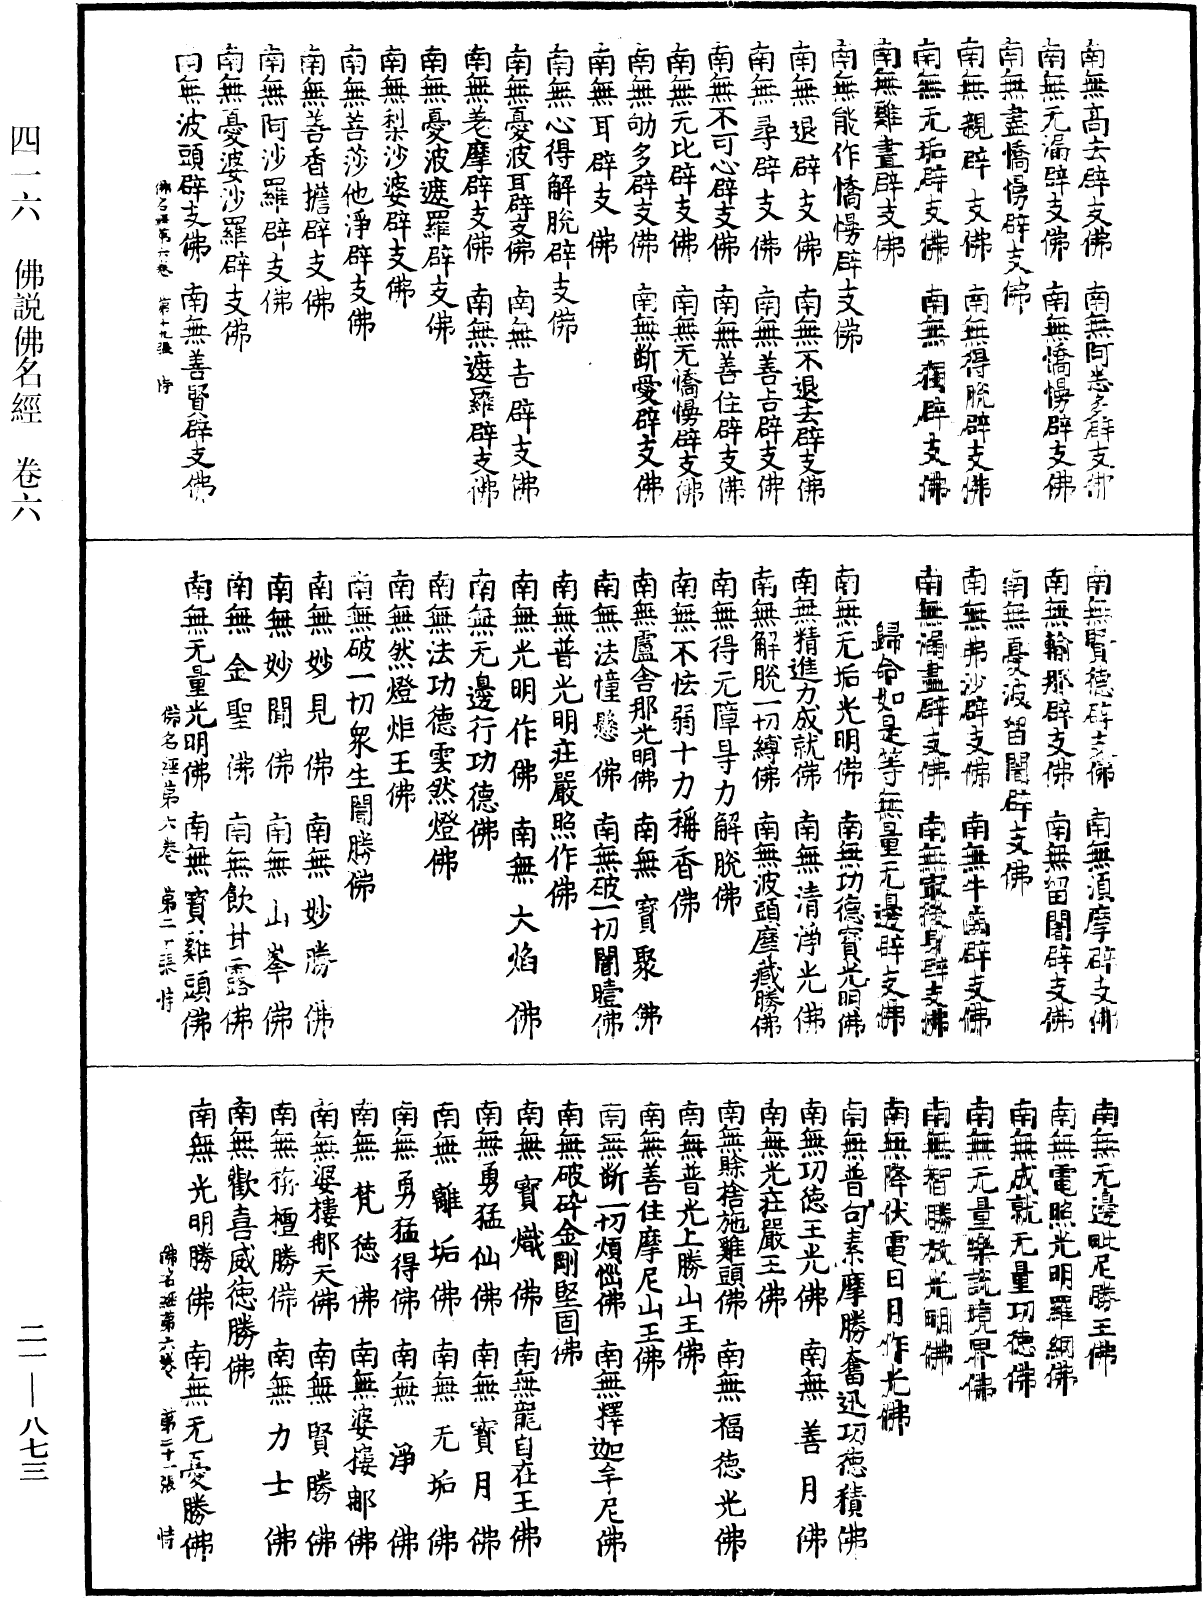 四一六　佛説佛名經　卷六
南無高去辟支佛　南無阿悉多辟支佛
南無无漏辟支佛　南無憍慢辟支佛
南無盡憍慢辟支佛
南無親辟支佛　南無得脱辟支佛
南無无垢辟支佛　南無獨辟支佛
南無難晝辟支佛
南無能作憍慢辟支佛
南無退辟支佛　南無不退去辟支佛
南無尋辟支佛　南無善吉辟支佛
南無不可心辟支佛　南無善住辟支佛
南無无比辟支佛　南無无憍慢辟支佛
南無劬多辟支佛　南無斷愛辟支佛
南無耳辟支佛
南無心得解脱辟支佛
南無憂波耳辟支佛　南無吉辟支佛
南無差摩辟支佛　南無遮羅辟支佛
南無憂波遮羅辟支佛
南無梨沙婆辟支佛
南無菩莎他淨辟支佛
南無善香擔辟支佛
南無阿沙羅辟支佛
南無憂婆沙羅辟支佛
南無波頭辟支佛　南無善賢辟支佛
佛名經第六卷　第十九張　恃
南無賢德辟支佛　南無須摩辟支佛
南無輸那辟支佛　南無留闍辟支佛
南無憂波留闍辟支佛
南無弗沙辟支佛　南無牛齒辟支佛
南無漏盡辟支佛　南無㝡後身辟支佛
歸命如是等無量无邊辟支佛
南無无垢光明佛　南無功德寶光明佛
南無精進力成就佛　南無清淨光佛
南無解脱一切縛佛　南無波頭摩藏勝佛
南無得无障㝵力解脱佛
南無不怯弱十力稱香佛
南無盧舍那光明佛　南無寶聚佛
南無法幢懸佛　南無破一切闇曀佛
南無普光明莊嚴照作佛
南無光明作佛　南無大焰佛
南無无邊行功德佛
南無法功德雲然燈佛
南無然燈炬王佛
南無破一切衆生闇勝佛
南無妙見佛　南無妙勝佛
南無妙聞佛　南無山峯佛
南無金聖佛　南無飲甘露佛
南無无量光明佛　南無寶雞頭佛
佛名經第六卷　第二十張　恃
南無无邊毗尼勝王佛
南無電照光明羅網佛
南無成就无量功德佛
南無无量樂説境界佛
南無智勝放光明佛
南無降伏電日月作光佛
南無普句素摩勝奮迅功徳積佛
南無功徳王光佛　南無善月佛
南無光莊嚴王佛
南無賒捨施難頭佛　南無福徳光佛
南無普光上勝山王佛
南無善住摩尼山王佛
南無斷一切煩惱佛　南無釋迦牟尼佛
南無破碎金剛堅固佛
南無寶熾佛　南無龍自在王佛
南無勇猛仙佛　南無寶月佛
南無離垢佛　南無无垢佛
南無勇猛得佛　南無淨佛
南無梵徳佛　南無婆樓那佛
南無婆樓那天佛　南無賢勝佛
南無栴檀勝佛　南無力士佛
南無歡喜威徳勝佛
南無光明勝佛　南無无憂勝佛
佛名經第六卷　第二十一張　恃
二一—八七三